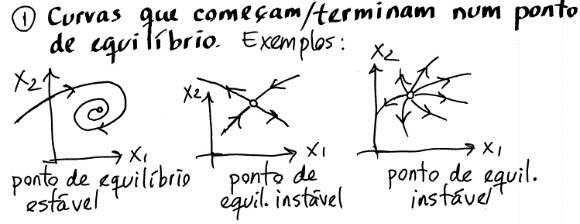 ① Curvas que começam/terminam num ponto
de equilíbrio. Exemplos:
x₂
x₁
ponto de equilíbrio
estável
x₂
x₁
ponto de
equil. instável
x₂
x₁
ponto de equil.
instável